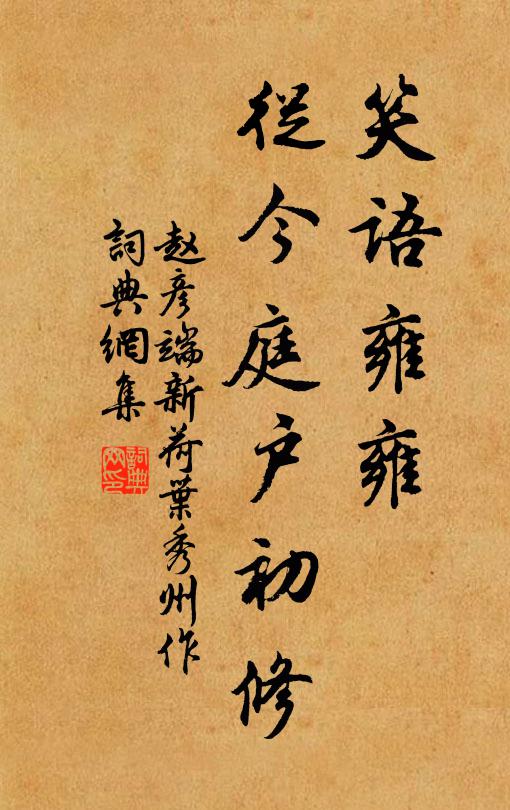 笑语雍雍
從今庭户初修
赵彦端新荷葉秀州作
詞典網集
詞典
网印